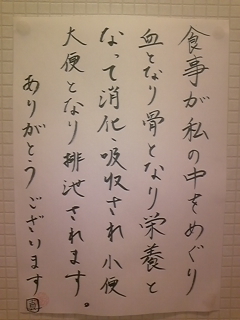 食事が私の中をめぐり
血となり骨となり栄養と
なって消化・吸収され小便
大便となり排泄されます。
ありがとうございます